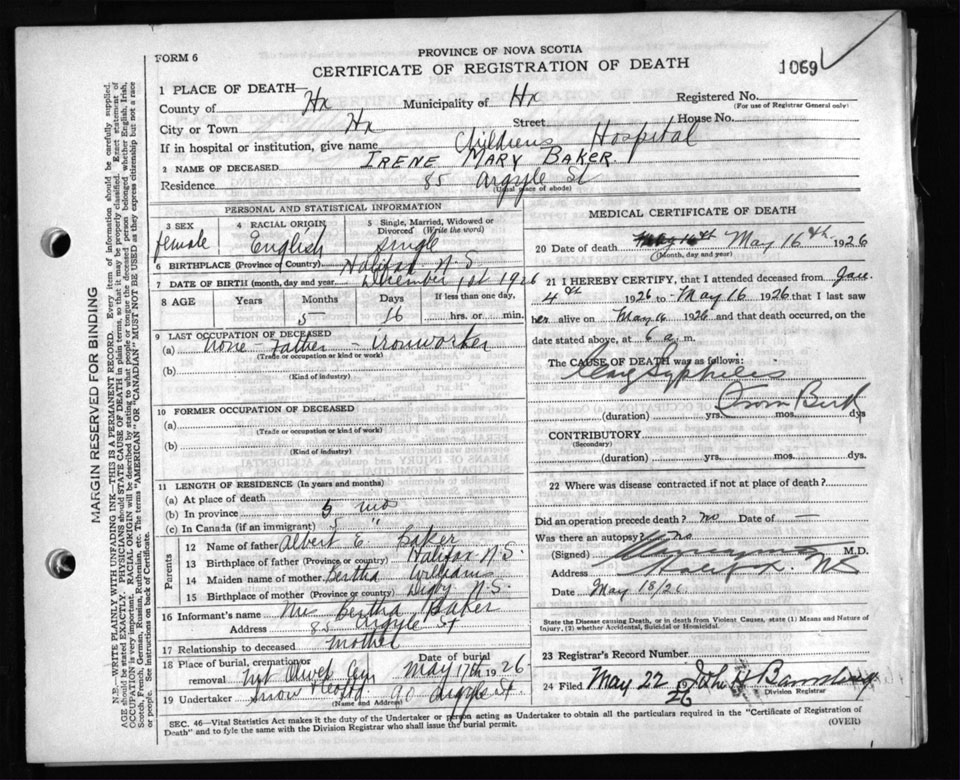 PROVINCE OF NOVA SCOTIA
FORM 6
CERTIFICATE OF REGISTRATION OF DEATH
1069
1 PLACE OF DEATH—
County of Hx Municipality of Hx Registered No.
(For use of Registrar General only)
City or Town Hx Street House No.
If in hospital or institution, give name Childrens Hospital
2 NAME OF DECEASED IRENE MARY BAKER
Residence 85 Argyle St
(Usual place of abode)
PERSONAL AND STATISTICAL INFORMATION
3 SEX female
4 RACIAL ORIGIN English
5 Single, Married, Widowed or Divorced (Write the word) single
6 BIRTHPLACE (Province or Country) Halifax N.S.
7 DATE OF BIRTH (month, day and year) December 1st 1926
8 AGE Years Months Days If less than one day,
5 16 hrs. or min.
9 LAST OCCUPATION OF DECEASED
(a) None - Father - ironworker
(Trade or occupation or kind of work)
(b)
(Kind of industry)
10 FORMER OCCUPATION OF DECEASED
(a)
(Trade or occupation or kind of work)
(b)
(Kind of industry)
11 LENGTH OF RESIDENCE (In years and months)
(a) At place of death
(b) In province 5 mos
(c) In Canada (if an immigrant) 5 "
Parents
12 Name of father Albert E. Baker
13 Birthplace of father (Province or country) Halifax N.S.
14 Maiden name of mother Bertha Williams
15 Birthplace of mother (Province or country) Digby N.S.
16 Informant's name Mrs Bertha Baker
Address 85 Argyle St
17 Relationship to deceased Mother
18 Place of burial, cremation or removal Mt Olivet Cem Date of burial May 17th 1926
19 Undertaker Snow 90 Argyle St
(Name and Address)
MEDICAL CERTIFICATE OF DEATH
20 Date of death May 16th May 16th 1926
(Month, day and year)
21 I HEREBY CERTIFY, that I attended deceased from Jan.
4th 1926 to May 16 1926 that I last saw
her alive on May 16 1926 and that death occurred, on
date stated above, at 6 a m.
The CAUSE OF DEATH was as follows:
Cong Syphiles
From Birth
(duration) yrs. mos. dys
CONTRIBUTORY
(Secondary)
(duration) yrs. mos. dys.
22 Where was disease contracted if not at place of death?
Did an operation precede death? no Date of —
Was there an autopsy? no
(Signed) M.D.
Address Halifax. NS
Date May 18/26
State the Disease causing Death, or in death from Violent Causes, state (1) Means and Nature of Injury, (2) whether Accidental, Suicidal or Homicidal.
23 Registrar's Record Number
24 Filed May 22 1926 John H
Division Registrar
SEC. 46—Vital Statistics Act makes it the duty of the Undertaker or person acting as Undertaker to obtain all the particulars required in the "Certificate of Registration of
Death" and to fyle the same with the Division Registrar who shall issue the burial permit.
(OVER)
MARGIN RESERVED FOR BINDING
N.B.—WRITE PLAINLY, WITH UNFADING INK—THIS IS A PERMANENT RECORD. Every item of information should be carefully supplied.
AGE should be stated EXACTLY. PHYSICIANS should STATE CAUSE OF DEATH in plain terms, so that it may be properly classified. Exact statement of
OCCUPATION is very important. RACIAL ORIGIN will be described by stating to what people or tongue the deceased person belonged whether English, Irish,
Scotch, French, German, Russian, Ruthenian, etc. The terms "AMERICAN" OR "CANADIAN" MUST NOT BE USED as they express citizenship but not a race
or people. See instructions on back of Certificate.